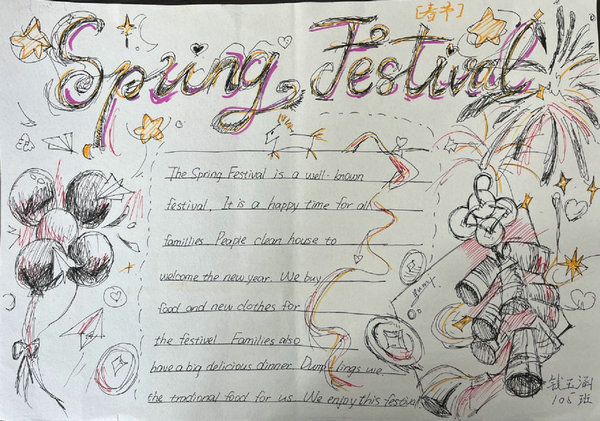 [春节]
Spring Festival
The Spring Festival is a well-known
festival. It is a happy time for all
families. People clean house to
welcome the new year. We buy
food and new clothes for
the festivel. Families also
have a big delicious dinner. Dumplings we
the tradional food for us. We enjoy this festival.
108班